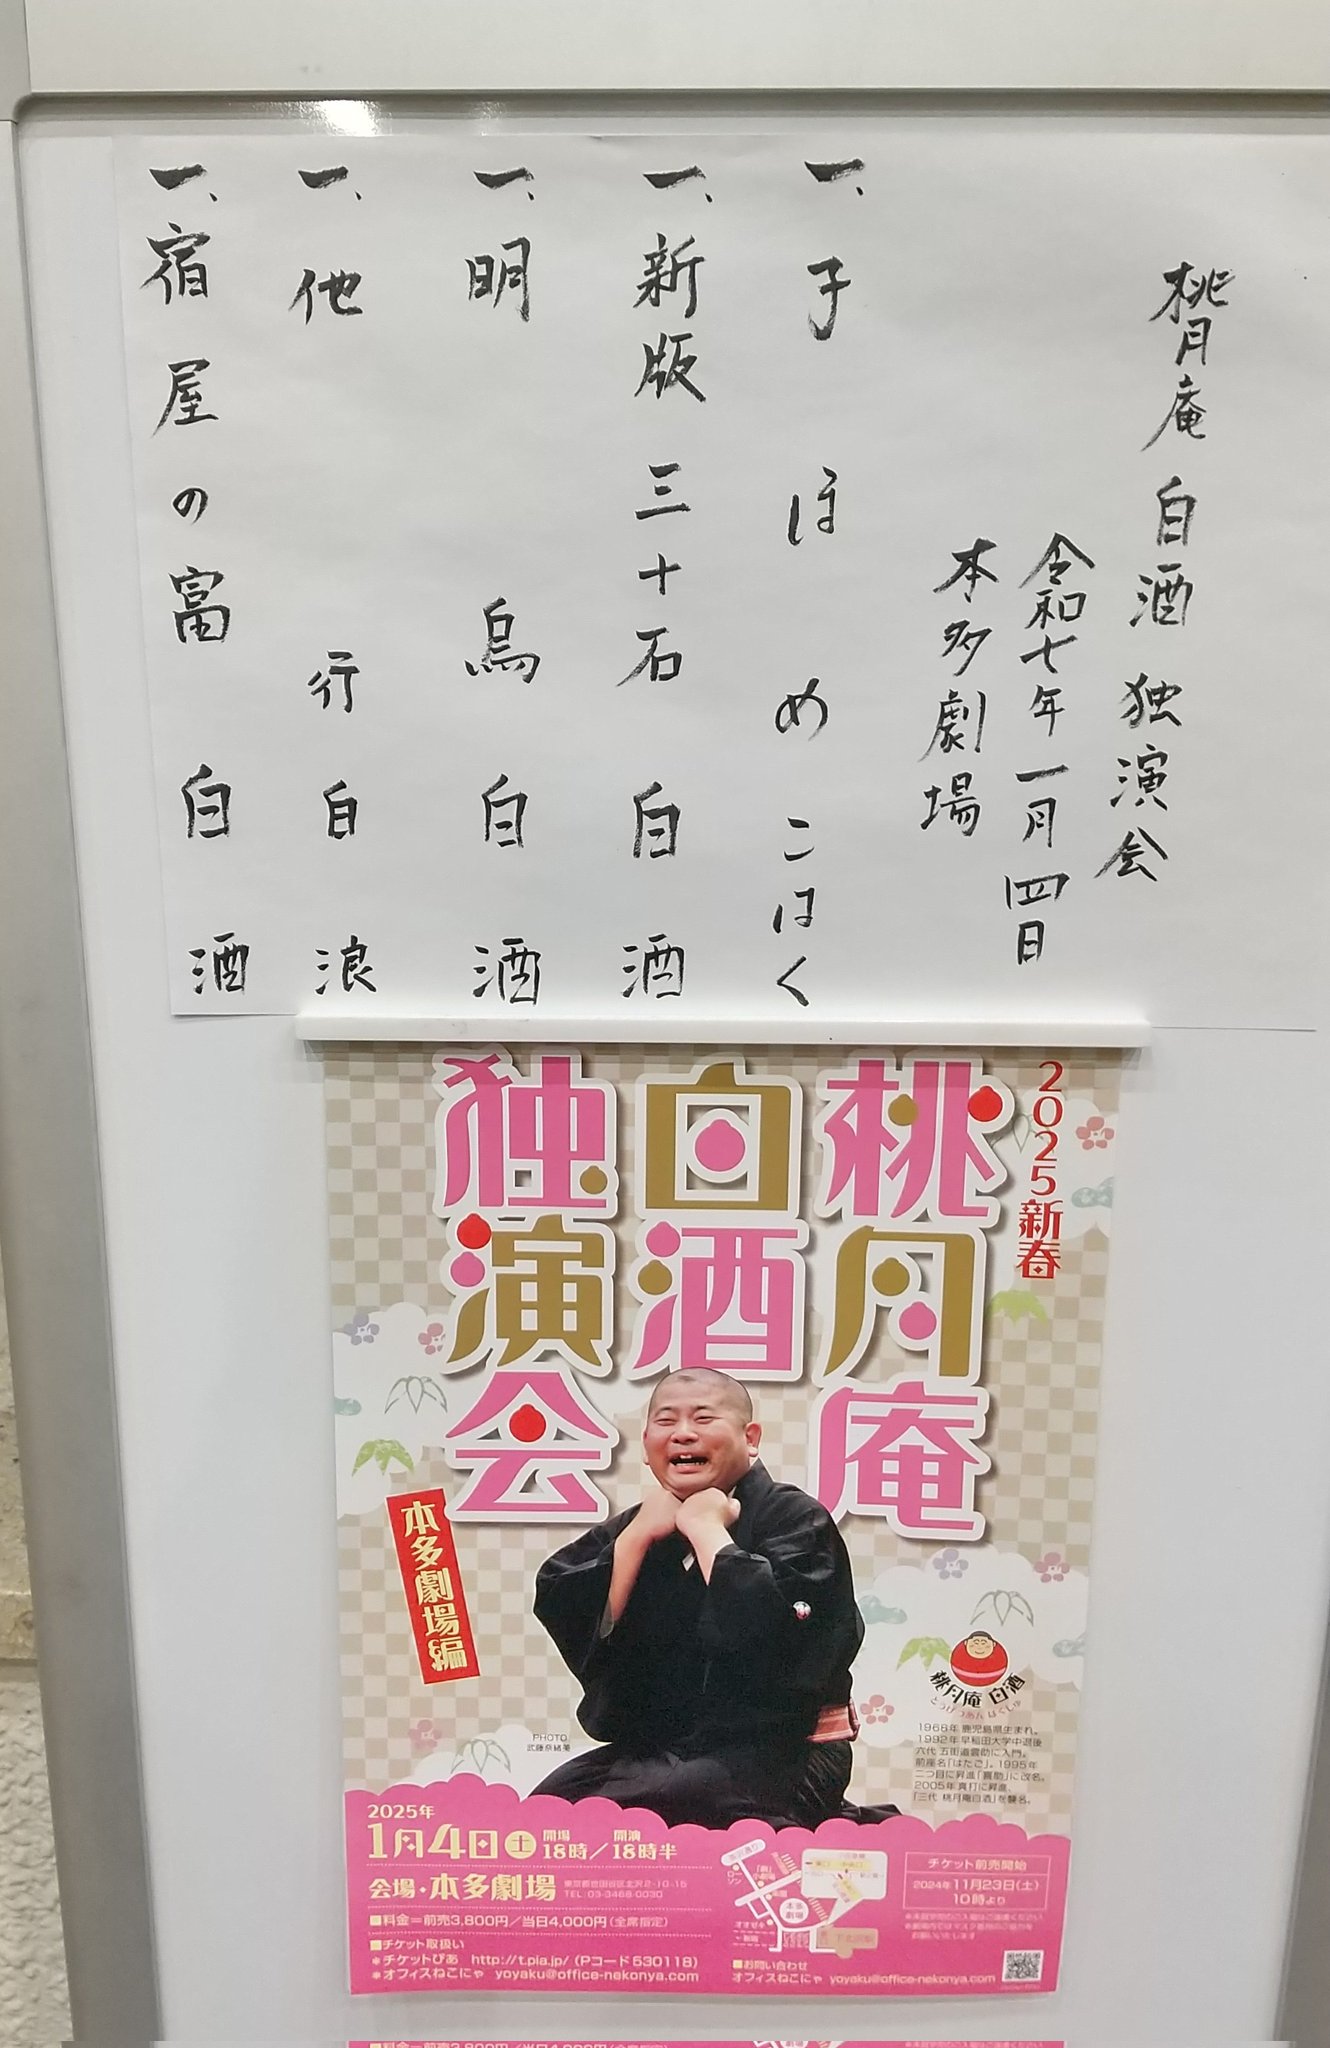 桃月庵 白酒 独演会
令和七年一月四日
本多劇場
一、子ほめ こはく
一、新版三十石 白酒
一、明烏 白酒
一、他行 白浪
一、宿屋の富 白酒
2025新春
桃月庵
白酒
独演会
本多劇場編
桃月庵 白酒
とうげつあん はくしゅ
1968年 鹿児島県生まれ。
1992年 早稲田大学中退後
六代 五街道雲助に入門。
前座名「はたご」。1995年
二つ目に昇進「喜助」に改名。
2005年 真打に昇進、
「三代 桃月庵白酒」を襲名。
PHOTO
武藤奈緒美
2025年
1月4日(土) 開場18時/開演18時半
会場・本多劇場 東京都世田谷区北沢2-10-15
TEL:03-3468-0030
■料金=前売3,800円/当日4,000円(全席指定)
■チケット取扱い
＊チケットぴあ http://t.pia.jp/(Pコード530118)
＊オフィスねこにゃ yoyaku@office-nekonya.com
本多劇場
チケット前売開始
2024年11月23日(土)
10時より
■お問い合わせ
オフィスねこにゃ yoyaku@office-nekonya.com